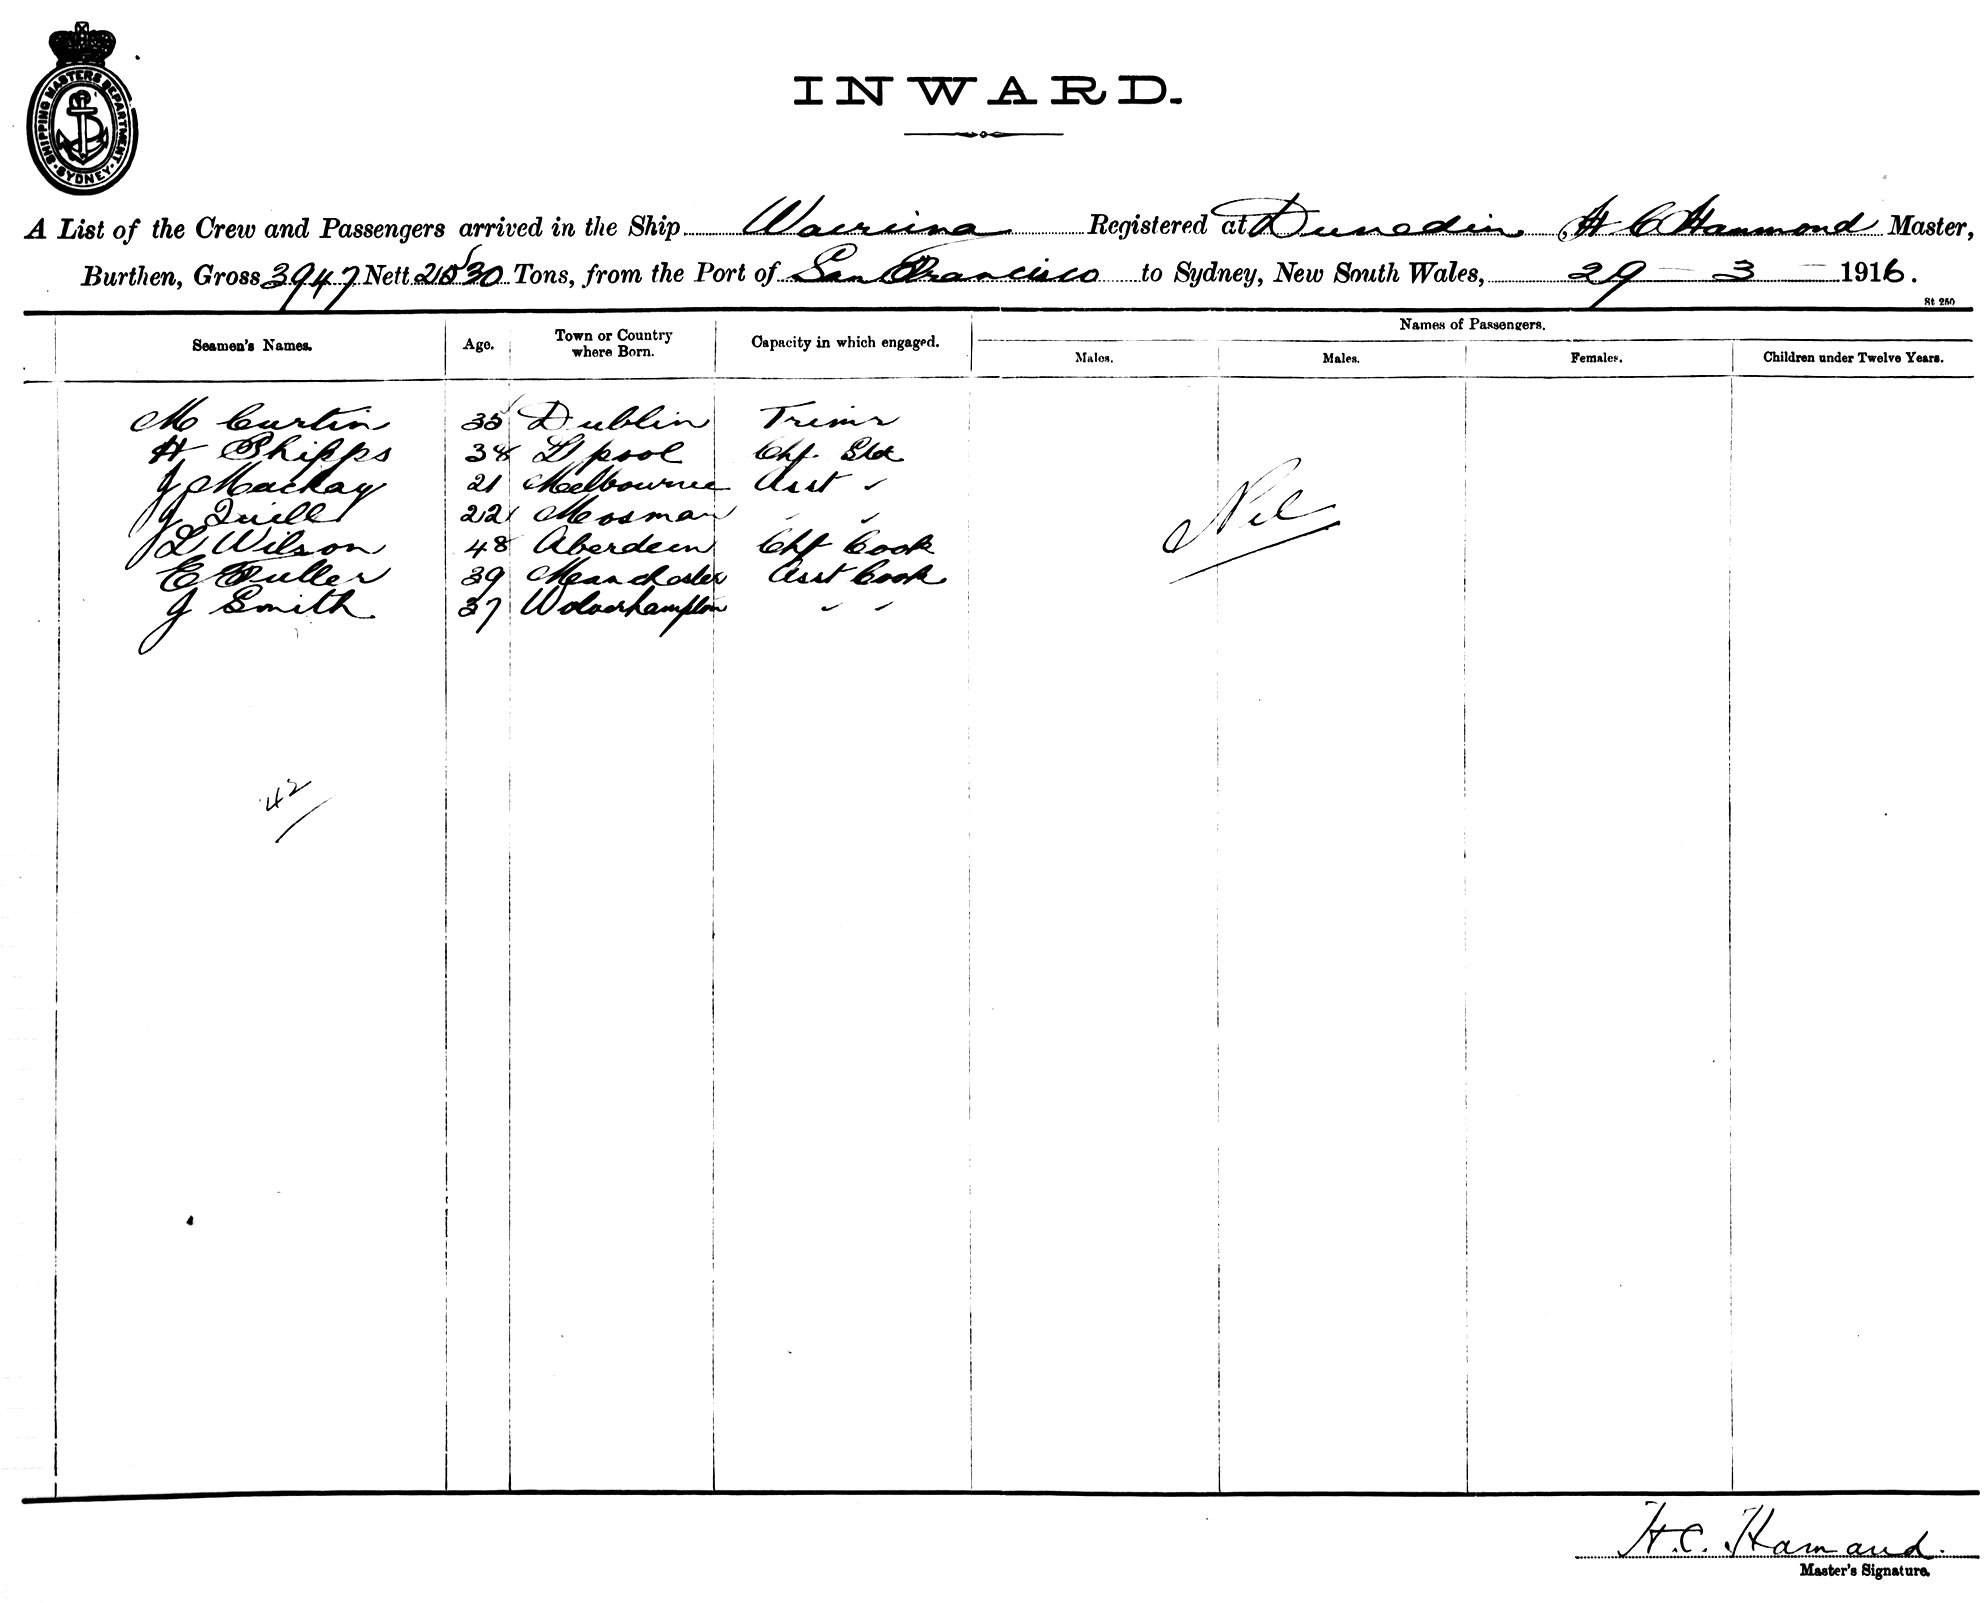 SHIPPING MASTERS DEPARTMENT SYDNEY
INWARD.
A List of the Crew and Passengers arrived in the Ship Wairuna Registered at Dunedin H C Hammond Master,
Burthen, Gross 3947 Nett 2530 Tons, from the Port of San Francisco to Sydney, New South Wales, 29 - 3 - 1916.
St 250
Seamen's Names. Age. Town or Country where Born. Capacity in which engaged. Names of Passengers.
Males. Males. Females. Children under Twelve Years.
M Curtin 35 Dublin Trimr
H Phipps 38 L'pool Chf. Std
J Mackay 21 Melbourne Asst "
J Quill 22 Mosman " "
Nil
L Wilson 48 Aberdeen Chf Cook
E Fuller 39 Manchester Asst Cook
J Smith 37 Wolverhampton " "
42
H.C. Hamand.
Master's Signature.